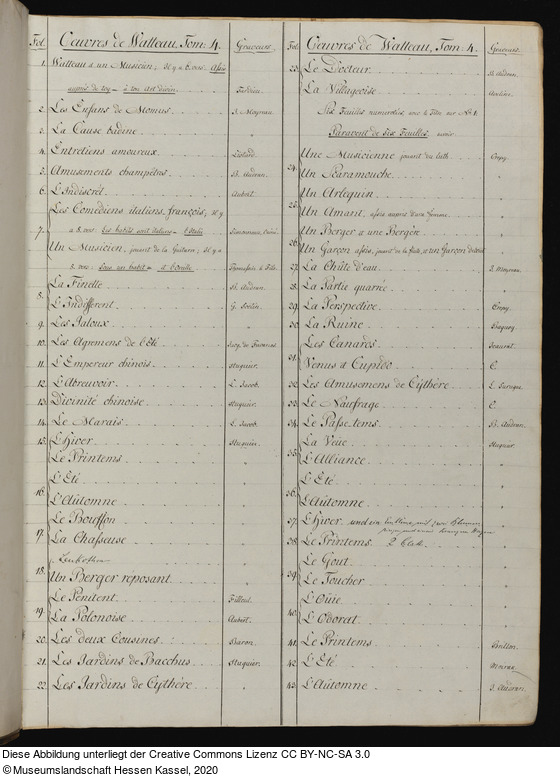 Fol. Oeuvres de Watteau, Tom: 4. Graveurs.
1. Watteau et un Musicien, Il y a 6 vers. Assis
auprès de toy
2. Les Enfans de Momus J. Moyreau
3. La Cause badine
4. Entretiens amoureux Liotard
5. Amusements champêtres B. Audran
6. L'Indiscret Aubert
Les Comédiens italiens, françois, il y
7. a 8. vers. Les habits sont italiens
Un Musicien, jouant de la Guitare; Il y a
8. vers Thomassin le Fils
La Finette B. Audran
8. L'Indifferent G. Scotin
9. Les Jaloux
10. Les Agremens de l'Eté
11. L'Empereur chinois Huquier
12. L'Abreuvoir L. Jacob
13. Divinité chinoise Huquier
14. Le Marais L. Jacob
15. L'Hiver Huquier
Le Printems
L'Eté
16. L'Automne
Le Bouffon
17. La Chasseuse
18. Un Berger reposant
Le Penitent Filloeul
19. La Polonoise Aubert
20. Les deux Cousines Baron
21. Les Jardins de Bacchus Huquier
22. Les Jardins de Cythére
Fol. Oeuvres de Watteau, Tom: 4. Graveurs
23. Le Docteur B. Audran
La Villageoise Aveline
Six Feuilles numerotées avec le Titre sur No. 1.
Paravent de Six Feuilles
Une Musicienne jouant du luth Crepy
24. Un Scaramouche
Un Arlequin
25. Un Amant, assis aupres d'une Femme
Un Berger et une Bergère
26. Un Garçon assis, jouant de la flute, et un Garçon
27. La Chûte d'eau J. Moyreau
28. La Partie quarrée
29. La Perspective Crepy
30. La Ruine Baquoy
Les Canards
31. Venus et Cupido C.
32. Les Amusemens de Cythère L. Surugue
33. Le Naufrage C
34. Le Passe-tems B. Audran
La Veüe Huquier
35. L'Alliance
L'Eté
36. L'Automne
37. L'Hiver und ein
38. Le Printems. 2 Blatt
Le Gout
39. Le Toucher
L'Oüie
40. L'Odorat
41. Le Printems Brillon
42. L'Eté Moyreau
43. L'Automne J. Audran
Diese Abbildung unterliegt der Creative Commons Lizenz CC BY-NC-SA 3.0
©Museumslandschaft Hessen Kassel, 2020